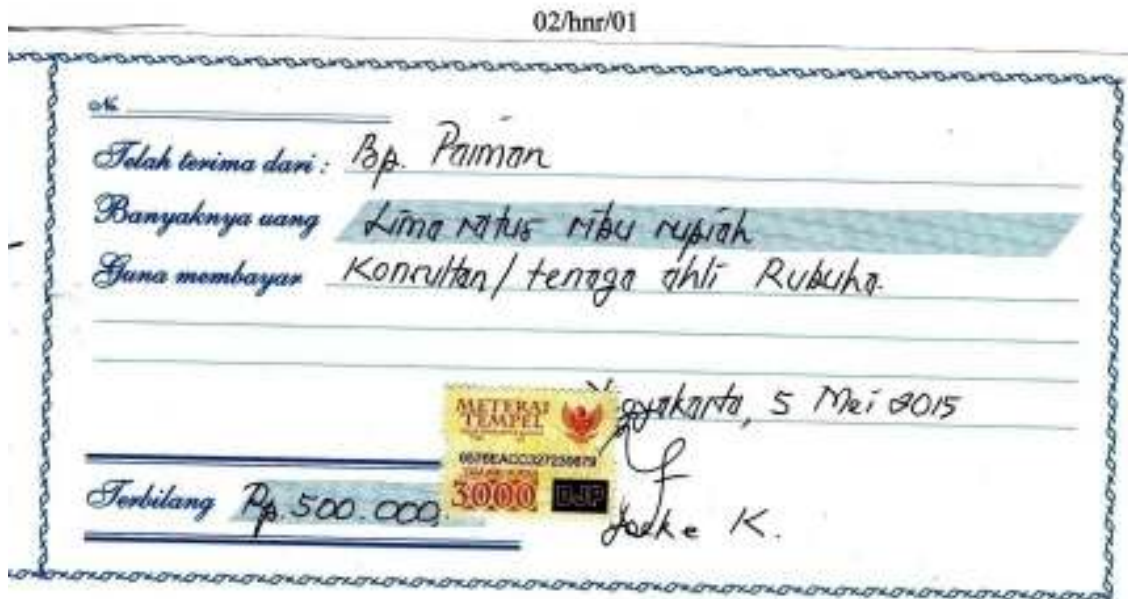 02/hnr/01
No.
Telah terima dari : Bp. Paiman
Banyaknya uang Lima ratus ribu rupiah
Guna membayar Konsultan/ tenaga ahli Rubuha.
Yogyakarta, 5 Mei 2015
METERAI
TEMPEL
3000 DJP
Terbilang Rp. 500.000,
K.